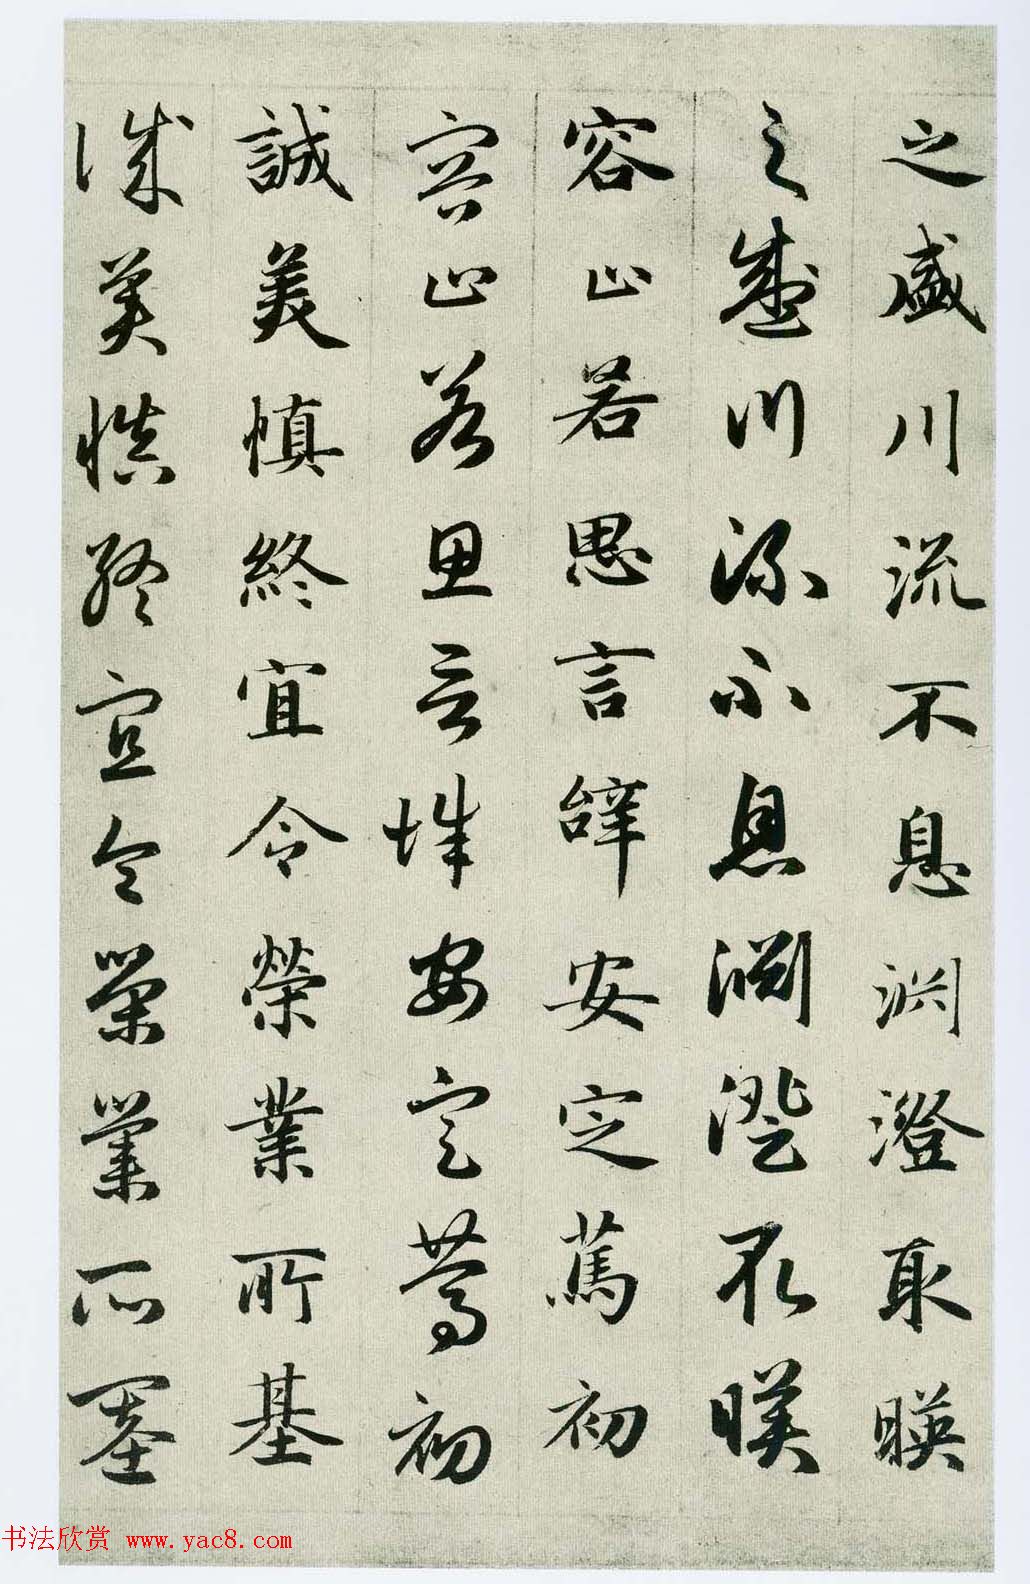 之盛川流不息渊澄取暎
之盛川流不息渊澄取暎
容止若思言辝安定篤初
容止若思言辝安定篤初
誠美慎終宜令榮業所基
誠美慎終宜令榮業所基
书法欣赏 www.yac8.com